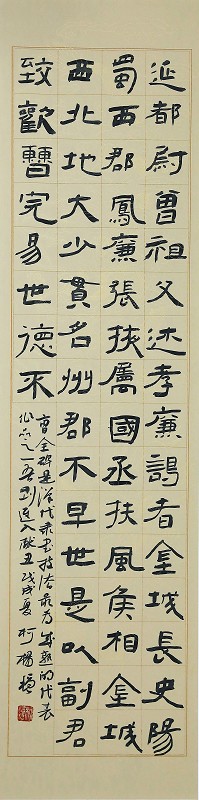 延都尉曾祖父述孝廉謁者金城長史陽
蜀西郡鳳廉張掖屬國丞扶風侯相金城
西北地大少貫名州郡不早世是以副君
致歡曹完易世德不
曹全碑是漢代隸書技法最為成熟的代表
作品之一 戊戌夏 柯楊